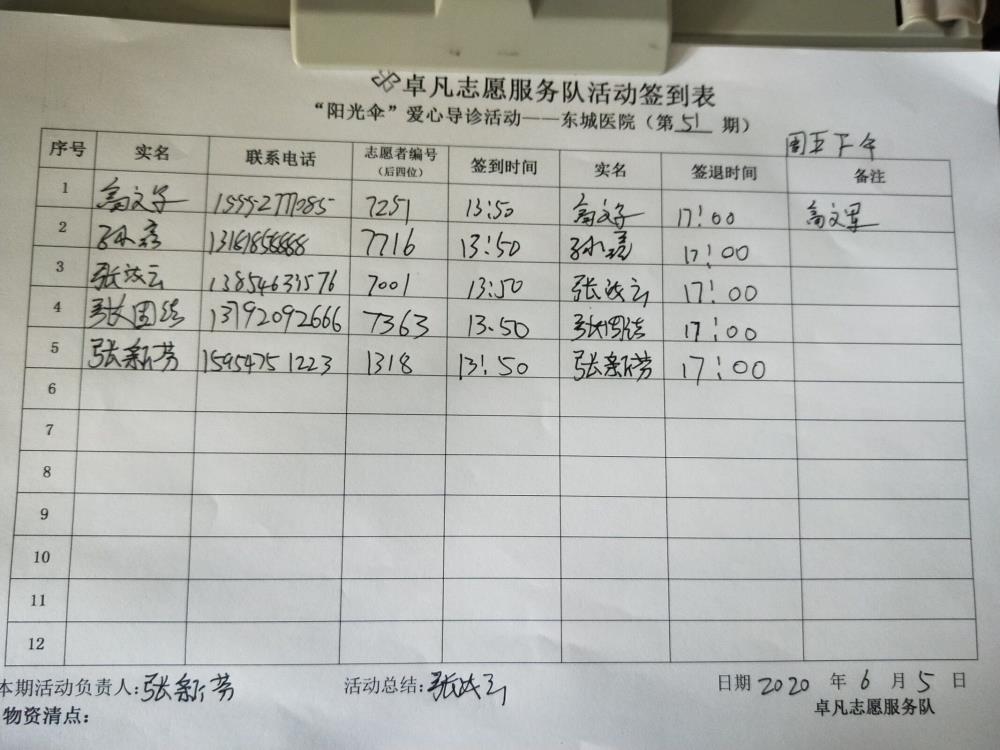 卓凡志愿服务队活动签到表
“阳光伞”爱心导诊活动——东城医院（第 51 期）
周五下午
序号 实名 联系电话 志愿者编号（后四位） 签到时间 实名 签退时间 备注
1 7251 13:50 17:00
2 7716 13:50 17:00
3 13854633576 7001 13:50 17:00
4 张国 13792092666 7363 13.50 张国 17:00
5 张新芳 15954751223 1318 13:50 张新芳 17:00
6
7
8
9
10
11
12
本期活动负责人:张新芳 活动总结: 日期 2020 年 6 月 5 日
物资清点： 卓凡志愿服务队